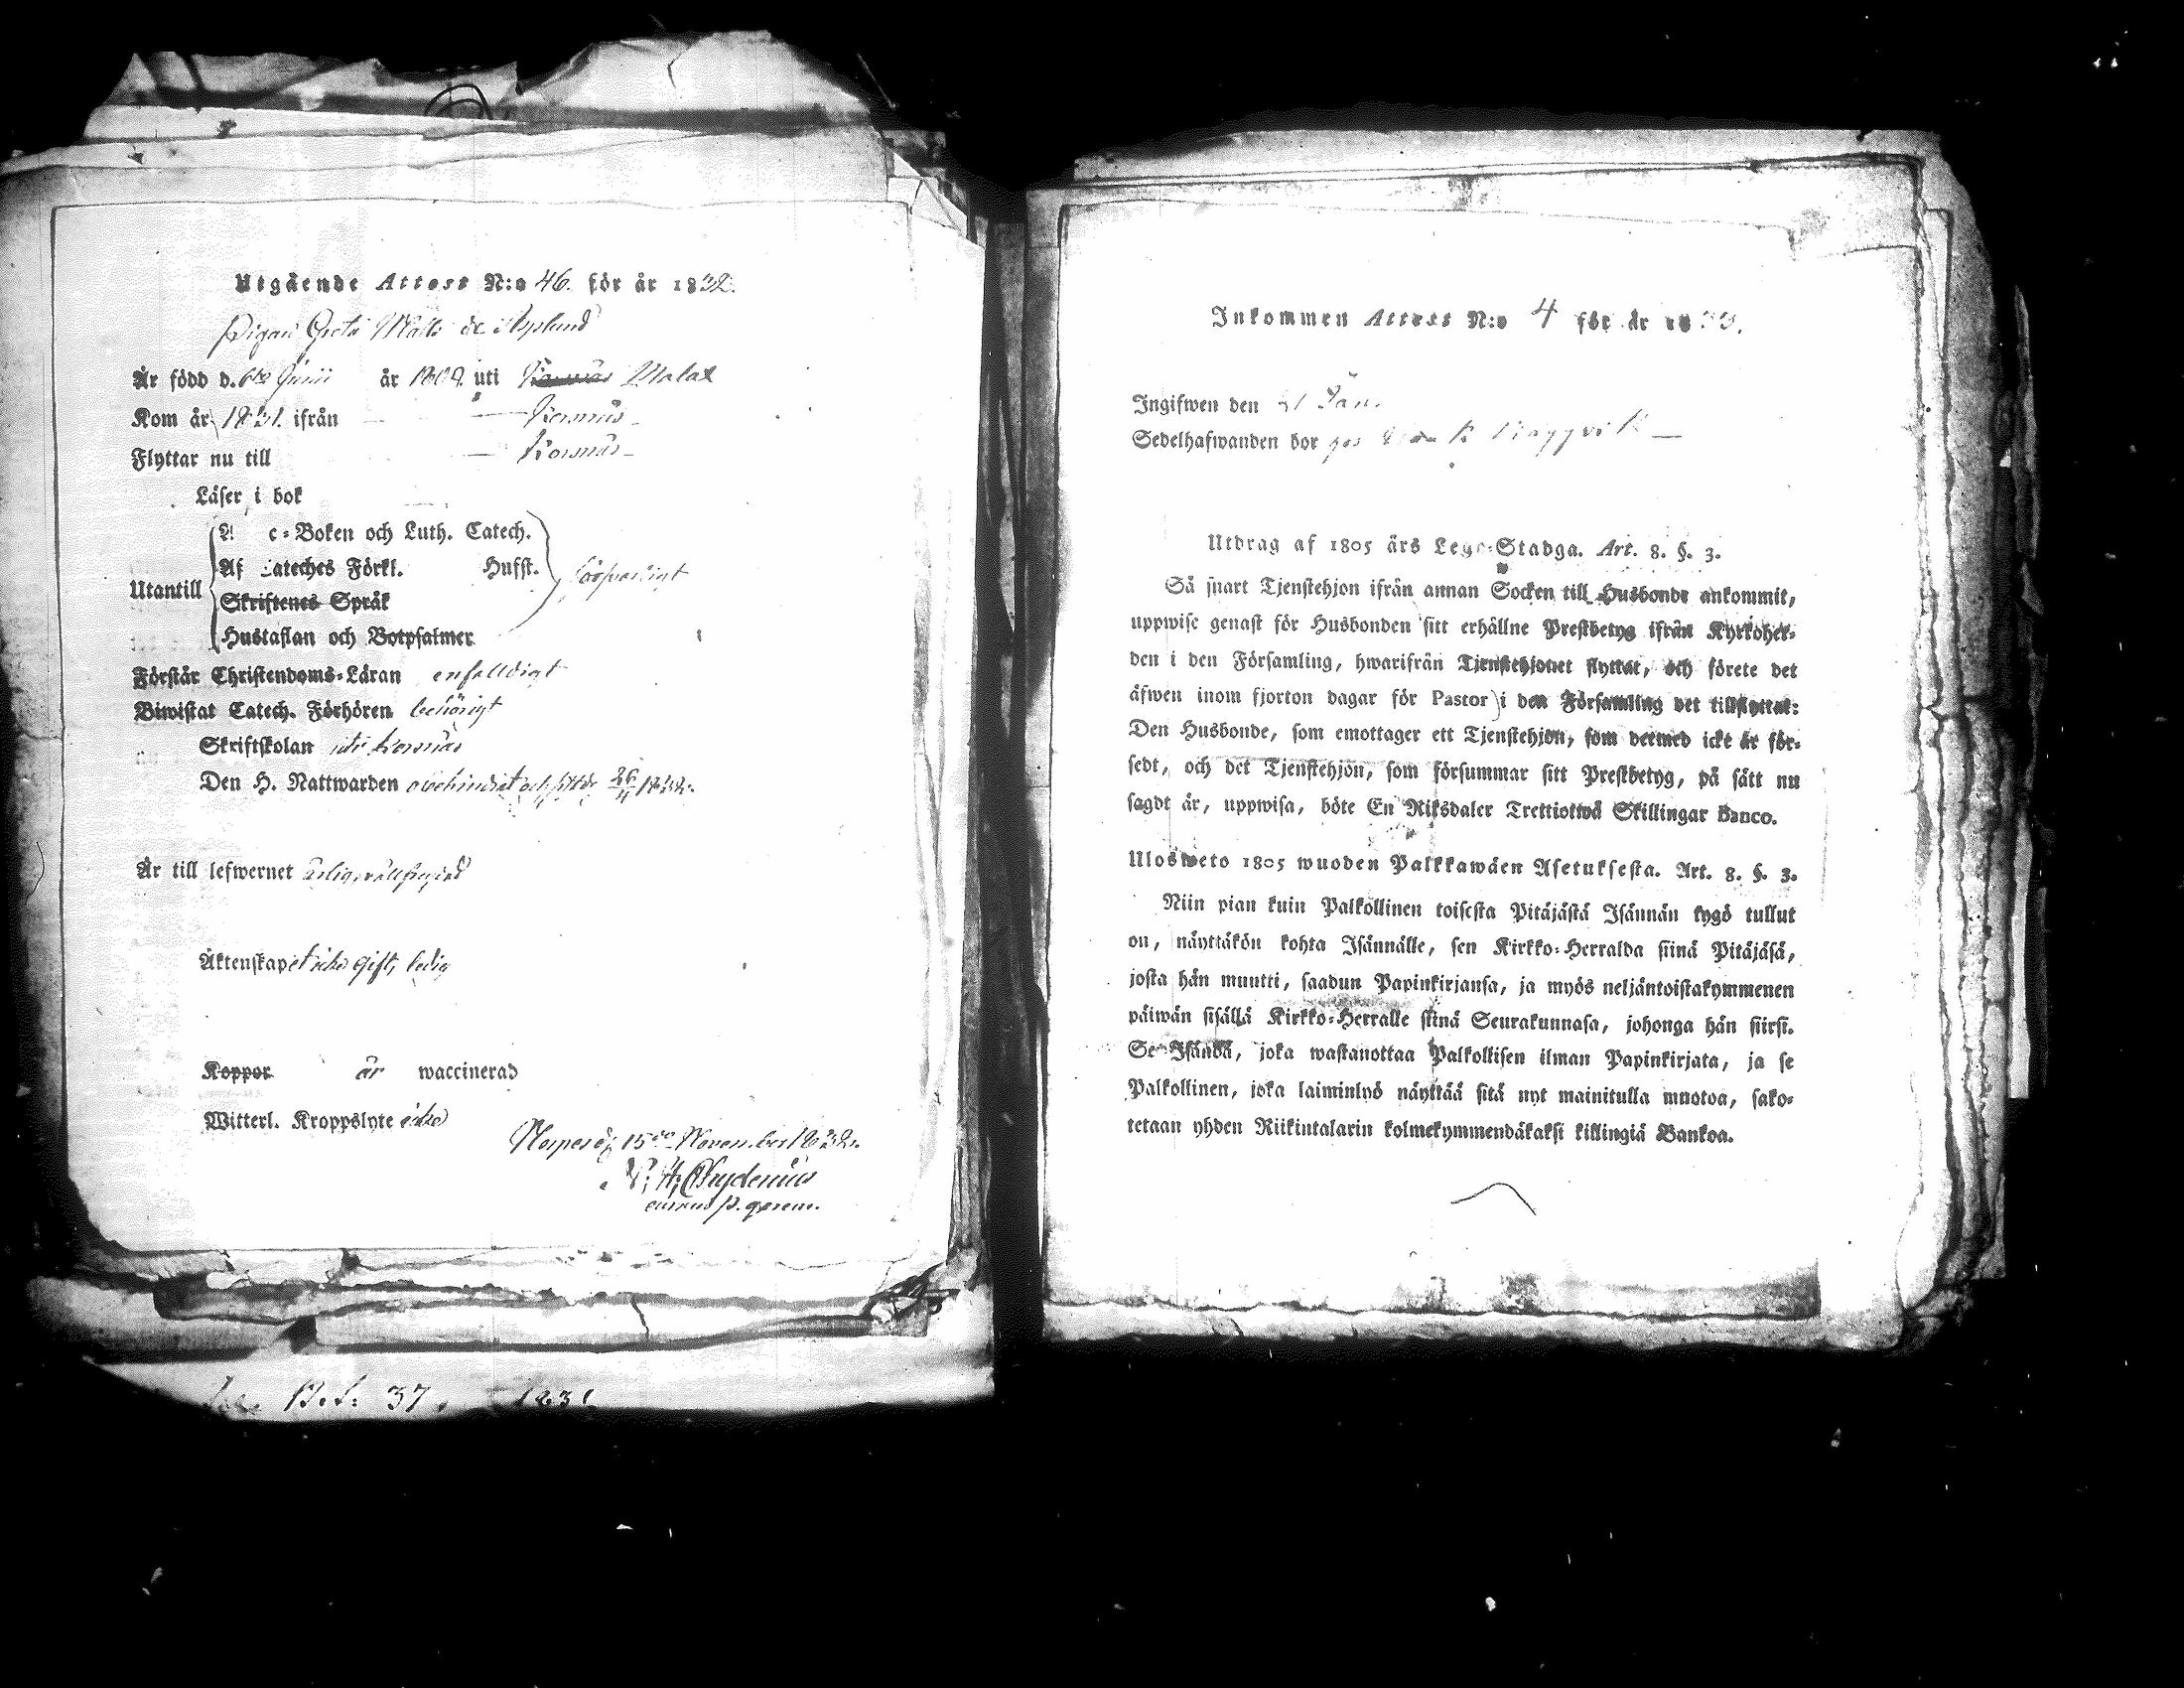 Utgående Attest N:o 46. för år 1832.
Pigan Greta Matts dr Asplund
År född d. 6te Junii år 1809. uti Korsnäs Malax
Kom år 1831. ifrån — Korsnäs
Flyttar nu till — Korsnäs
Läser i bok
A c-Boken och Luth. Catech.
Af Cateches Förkl. Husst.
försvarligt
Utantill
Skriftenes Språk
Hustaflan och Botpsalmer
Förstår Christendoms-Läran enfalldigt
Biwistat Catech. Förhören behörigt
Skriftskolan uti Korsnäs
Den H. Nattwarden obehindrat och sist d. 26/4 1832.
År till lefwernet ärlig, välfrejdad
Äktenskapet icke gift, ledig
Koppor är waccinerad
Witterl. Kroppslyte icke
15de November 1832.
Chydenius
p. gerens.
37. 1831
Inkommen Attest N:o 4 för år 1833.
Ingifwen den 21 Jan.
Sedelhafwanden bor hos
Utdrag af 1805 års Lego-Stadga. Art. 8. §. 3.
Så snart Tjenstehjon ifrån annan Socken till Husbonde ankommit,
uppwise genast för Husbonden sitt erhållne Prestbetyg ifrån Kyrkoher-
den i den Församling, hwarifrån Tjenstehjonet flyttat, och förete det
äfwen inom fjorton dagar för Pastor i den Församling det tillflyttat:
Den Husbonde, som emottager ett Tjenstehjon, som dermed icke är för-
sedt, och det Tjenstehjon, som försummar sitt Prestbetyg, på sätt nu
sagdt är, uppwisa, böte En Riksdaler Trettiotwå Skillingar Banco.
Ulosweto 1805 wuoden Palkkawäen Asetuksesta. Art. 8. §. 3.
Niin pian kuin Palkollinen toisesta Pitäjästä Isännän tygö tullut
on, näyttäkön kohta Isännälle, sen Kirkko-Herralda siinä Pitäjäsä,
josta hän muutti, saadun Papinkirjansa, ja myös neljäntoistakymmenen
päiwän sisällä Kirkko-Herralle siinä Seurakunnasa, johonga hän siirsi.
Se Isändä, joka wastanottaa Palkollisen ilman Papinkirjata, ja se
Palkollinen, joka laiminlyö näyttää sitä nyt mainitulla muotoa, sako-
tetaan yhden Riikintalarin kolmekymmendäkaksi killingiä Bankoa.